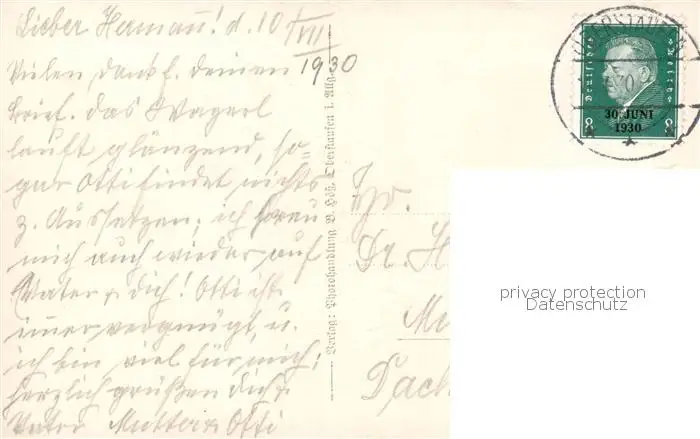 Lieber Hermann! d. 10/VII
1930
Vielen Dank f. deinen
Brief. das Wagerl
lauft glänzend, so
gar Otti findet nichts
z. Aussetzen; ich freu
mich auch wieder auf
Vater u. dich! Otti ist
immer vergnügt, u.
ich bin viel für mich;
herzlich grüßen dich
Vater Mutter u. Otti
Verlag: Photohandlung B. Höß, Oberstaufen i. Allg.
Deutsches Reich
8 8
30. JUNI
1930
OBERSTAUFEN
Hr.
Dr. H
Mü
Dach
privacy protection
Datenschutz